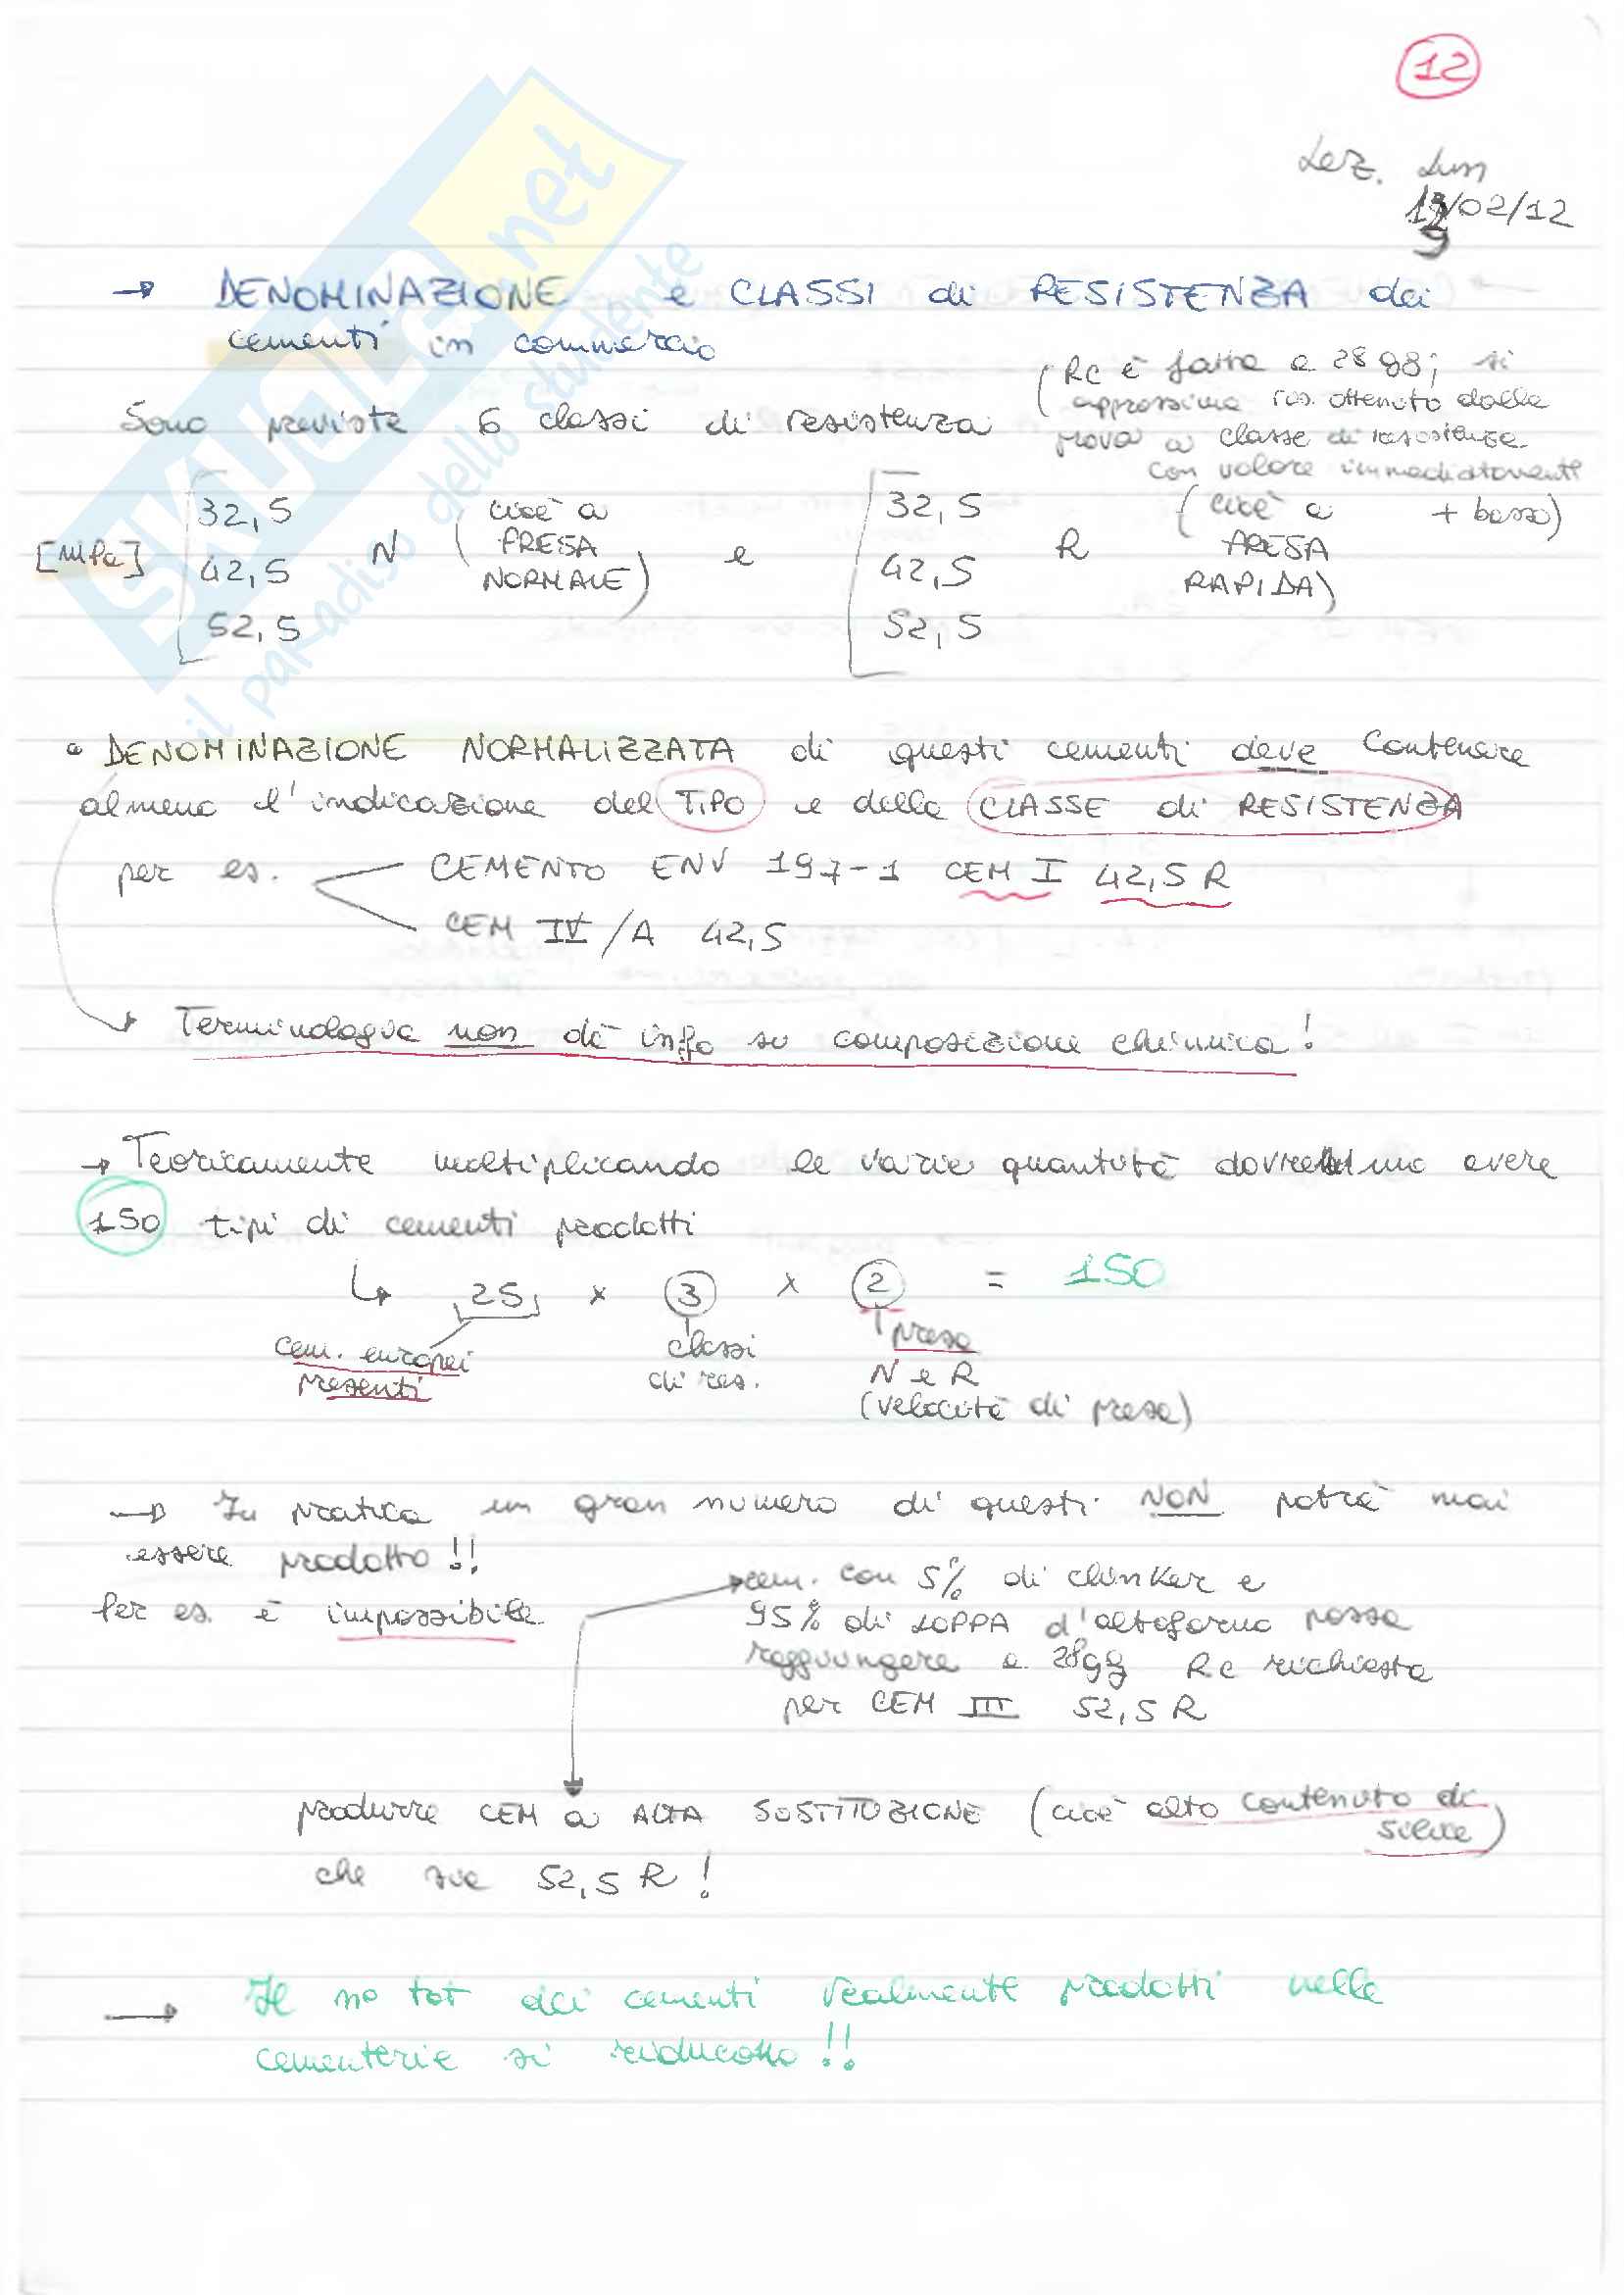 12
Lez. Lun
/02/12
9
→ DENOMINAZIONE e CLASSI di RESISTENZA dei
cementi in commercio
Sono previste 6 classi di resistenza
(Rc è fatta a 28 gg; si
approssima ris. ottenuto dalla
prova a classe di resistenza
con valore immediatamente
+ basso)
[MPa] 32,5 42,5 52,5 N (cioè a PRESA NORMALE) e 32,5 42,5 52,5 R (cioè a PRESA RAPIDA)
• DENOMINAZIONE NORMALIZZATA di questi cementi deve contenere
almeno l'indicazione del TIPO e della CLASSE di RESISTENZA
per es. CEMENTO ENV 197-1 CEM I 42,5 R
CEM IV/A 42,5
→ Terminologia non dà info su composizione chimica!
→ Teoricamente moltiplicando le varie quantità dovremmo avere
150 tipi di cementi prodotti
↳ 25 x 3 x 2 = 150
cem. europei presenti
classi di res.
presa
N e R
(velocità di presa)
→ In pratica un gran numero di questi NON potrà mai
essere prodotto!!
Per es. è impossibile
cem. con 5% di clinker e
95% di LOPPA d'altoforno possa
raggiungere a 28gg Rc richiesta
per CEM III 52,5 R
produrre CEM a ALTA SOSTITUZIONE (cioè alto contenuto di
silice)
che sia 52,5 R!
→ Il no tot dei cementi realmente prodotti nelle
cementerie si riducono!!
SKUOLA.net
il paradiso dello studente